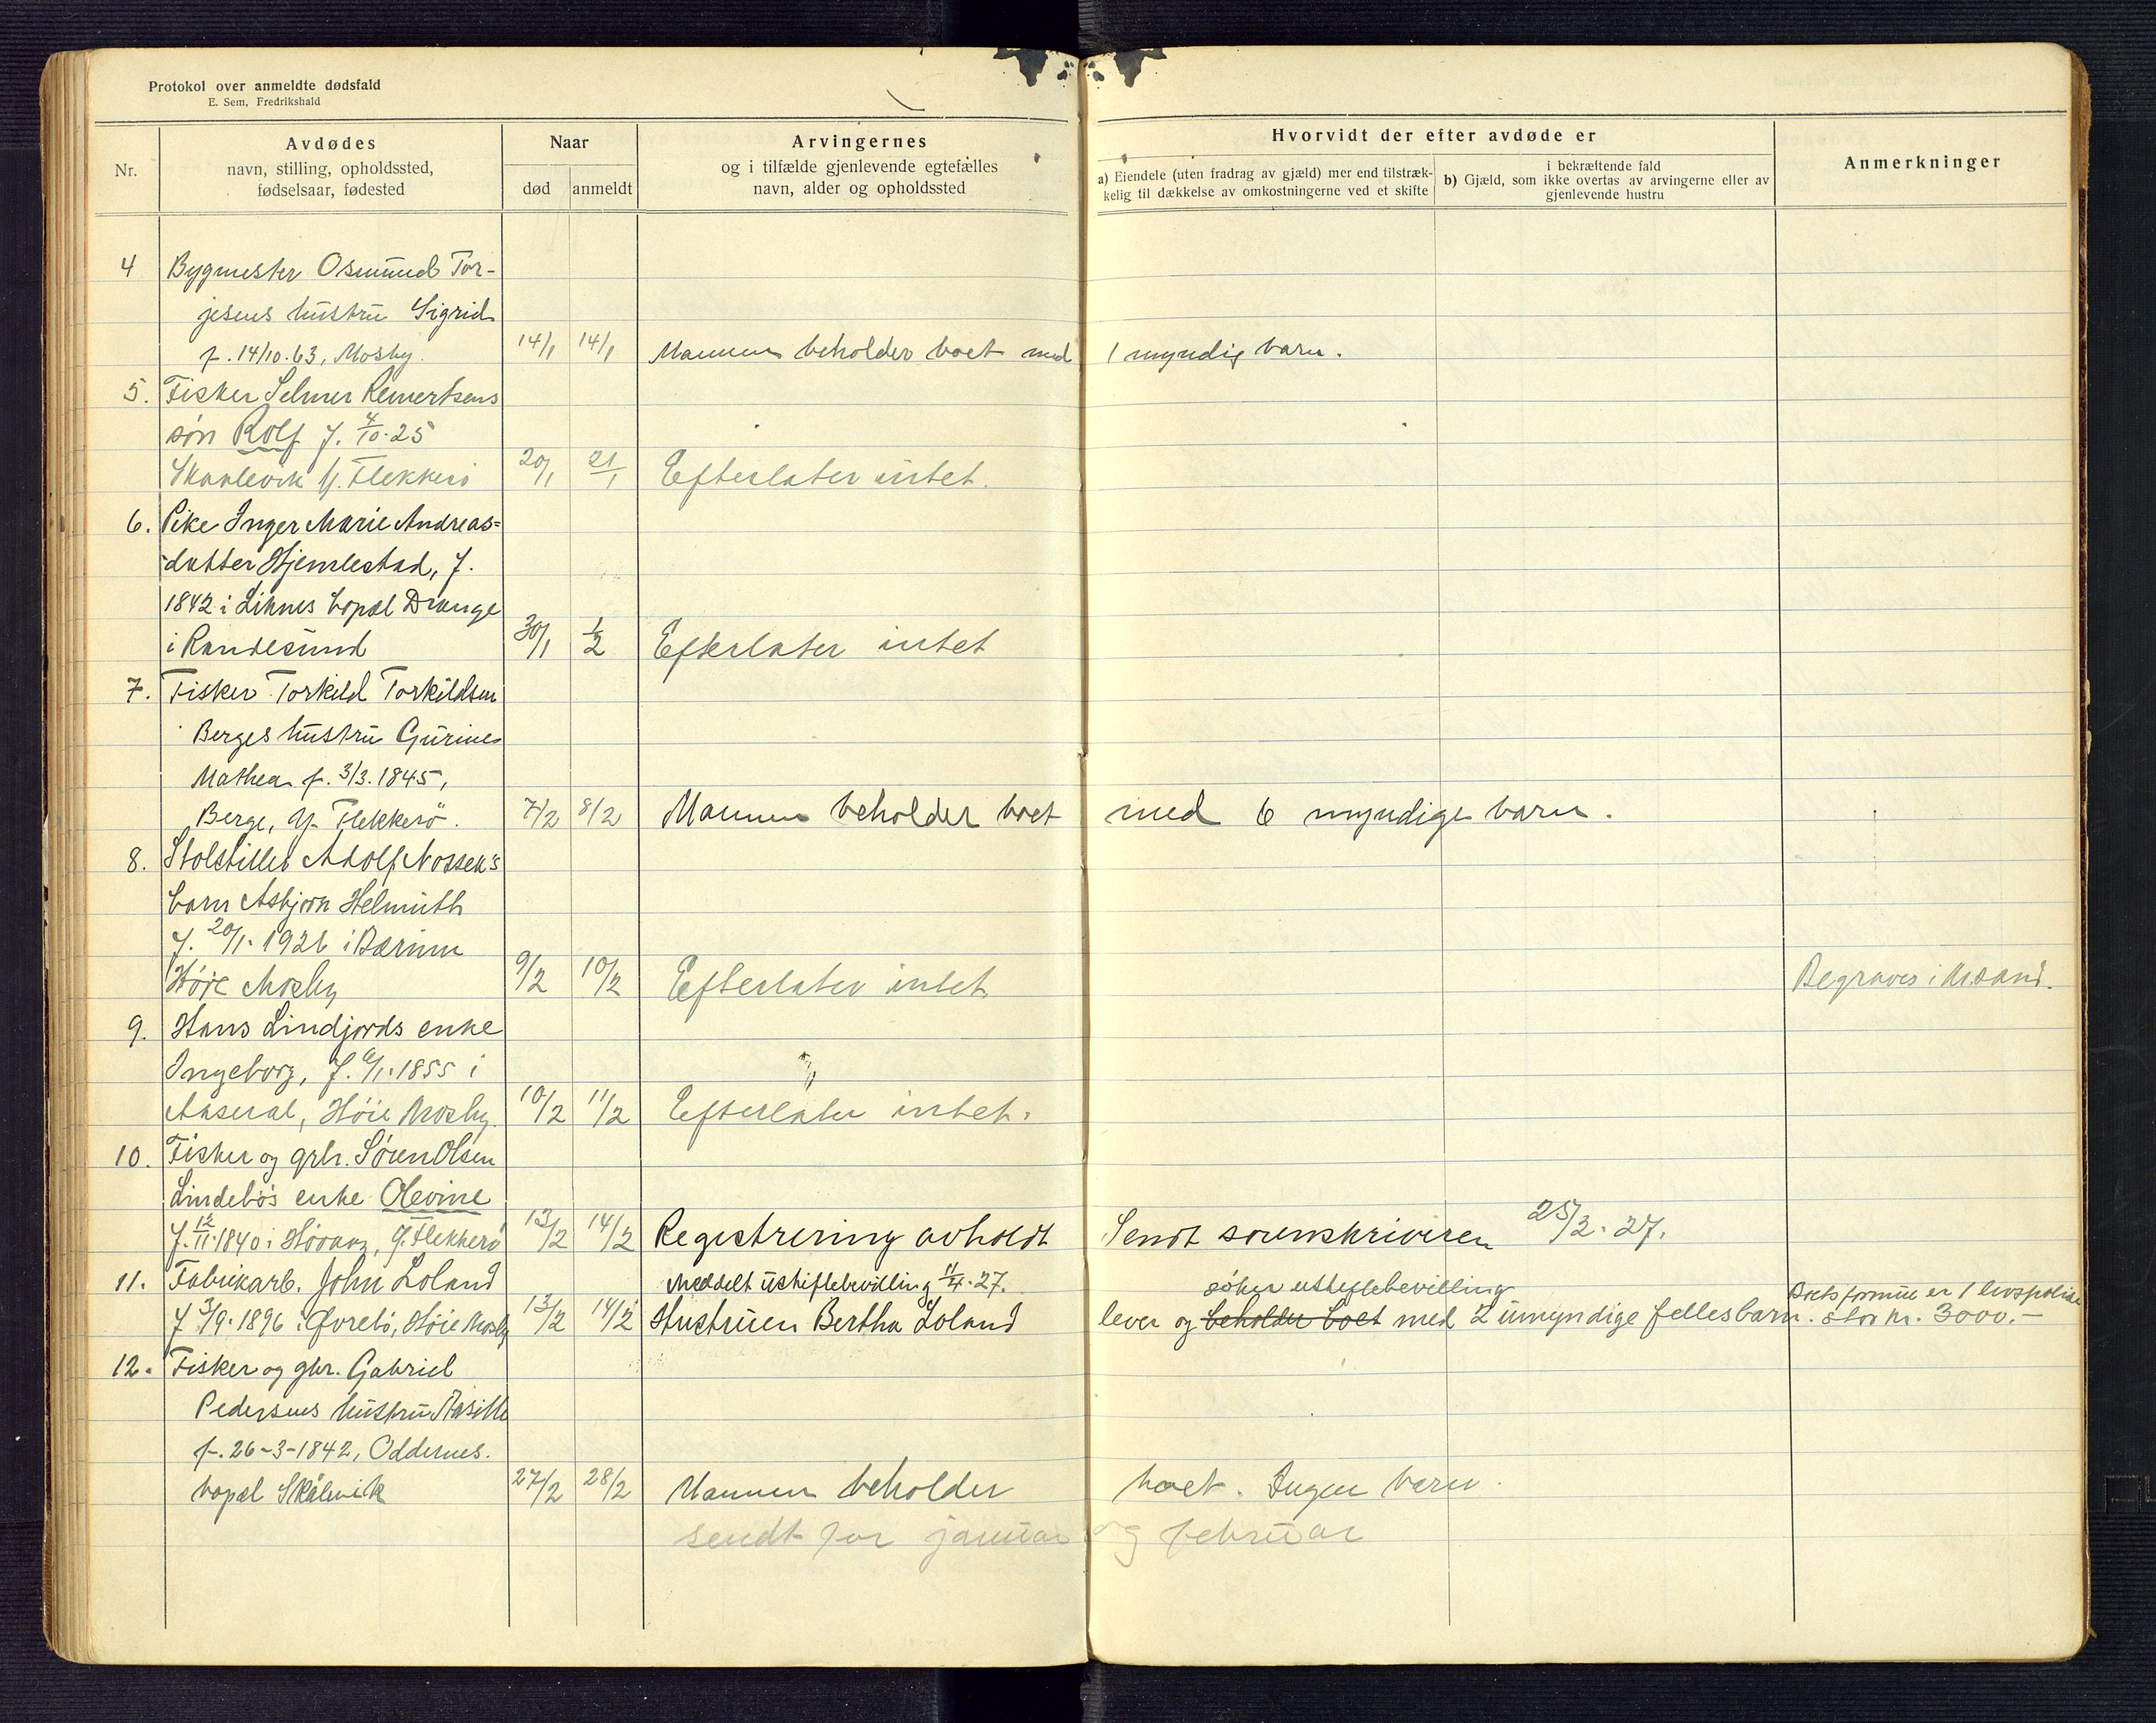 Protokol over anmeldte dødsfald
E. Sem, Fredrikshald
Nr.
Avdødes
navn, stilling, opholdssted,
fødselsaar, fødested
Naar
død anmeldt
Arvingernes
og i tilfælde gjenlevende egtefælles
navn, alder og opholdssted
Hvorvidt der efter avdøde er
a) Eiendele (uten fradrag av gjæld) mer end tilstræk-
kelig til dækkelse av omkostningerne ved et skifte
i bekræftende fald
b) Gjæld, som ikke overtas av arvingerne eller av
gjenlevende hustru
Anmerkninger
4 Bygmester Osmund Tor-
jesens hustru Sigrid
f. 14/10.63, Mosby. 14/1 14/1 Mannen beholder boet med 1 myndig barn.
5. Fisker Selmer Remertsens
søn Rolf f. 4/10.25
Skaalevik Y. Flekkerø 20/1 21/1 Efterlater intet.
6. Pike Inger Marie Andreas=
datter Hjemlestad, f.
1842 i Liknes bopæl Drange
i Randesund 30/1 1/2 Efterlater intet
7. Fisker Torkild Torkildsen
Berges hustru Gurine
Mathea f. 3/3.1845,
Berge, Y. Flekkerö. 7/2 8/2 Mannen beholder boet med 6 myndige barn.
8. Adolf Nossek's
barn Asbjørn Helmuth
f. 20/1-1926 i Bærum
Høie Mosby 9/2 10/2 Efterlater intet Begraves i Kr.sand.
9. Hans Lindjords enke
Ingeborg, f. 6/1.1855 i
Aaseral, Höie Mosby. 10/2 11/2 Efterlater intet.
10. Fisker og grb. Sören Olsen
Lindebø's enke Olevine
f. 12/11.1840 i Flekkerö 13/2 14/2 Registrering avholdt Sendt sorenskriveren 25/2.27.
11. Fabrikarb. John Loland Meddelt uskiftebevilling 11/4.27. søker uskiftebevilling Boets formue er 1 livspolise
f 3/9.1896 i Øvrebø, Høie Mosby 13/2 14/2 Hustruen Bertha Loland lever og beholder boet med 2 umyndige fellesbarn. stor kr. 3000.-
12. Fisker og gbr. Gabriel
Pedersens hustru Aasille
f. 26-3-1842, Oddernes.
bopæl Skålevik 27/2 28/2 Mannen beholder boet. Ingen barn.
sendt for januar og februar